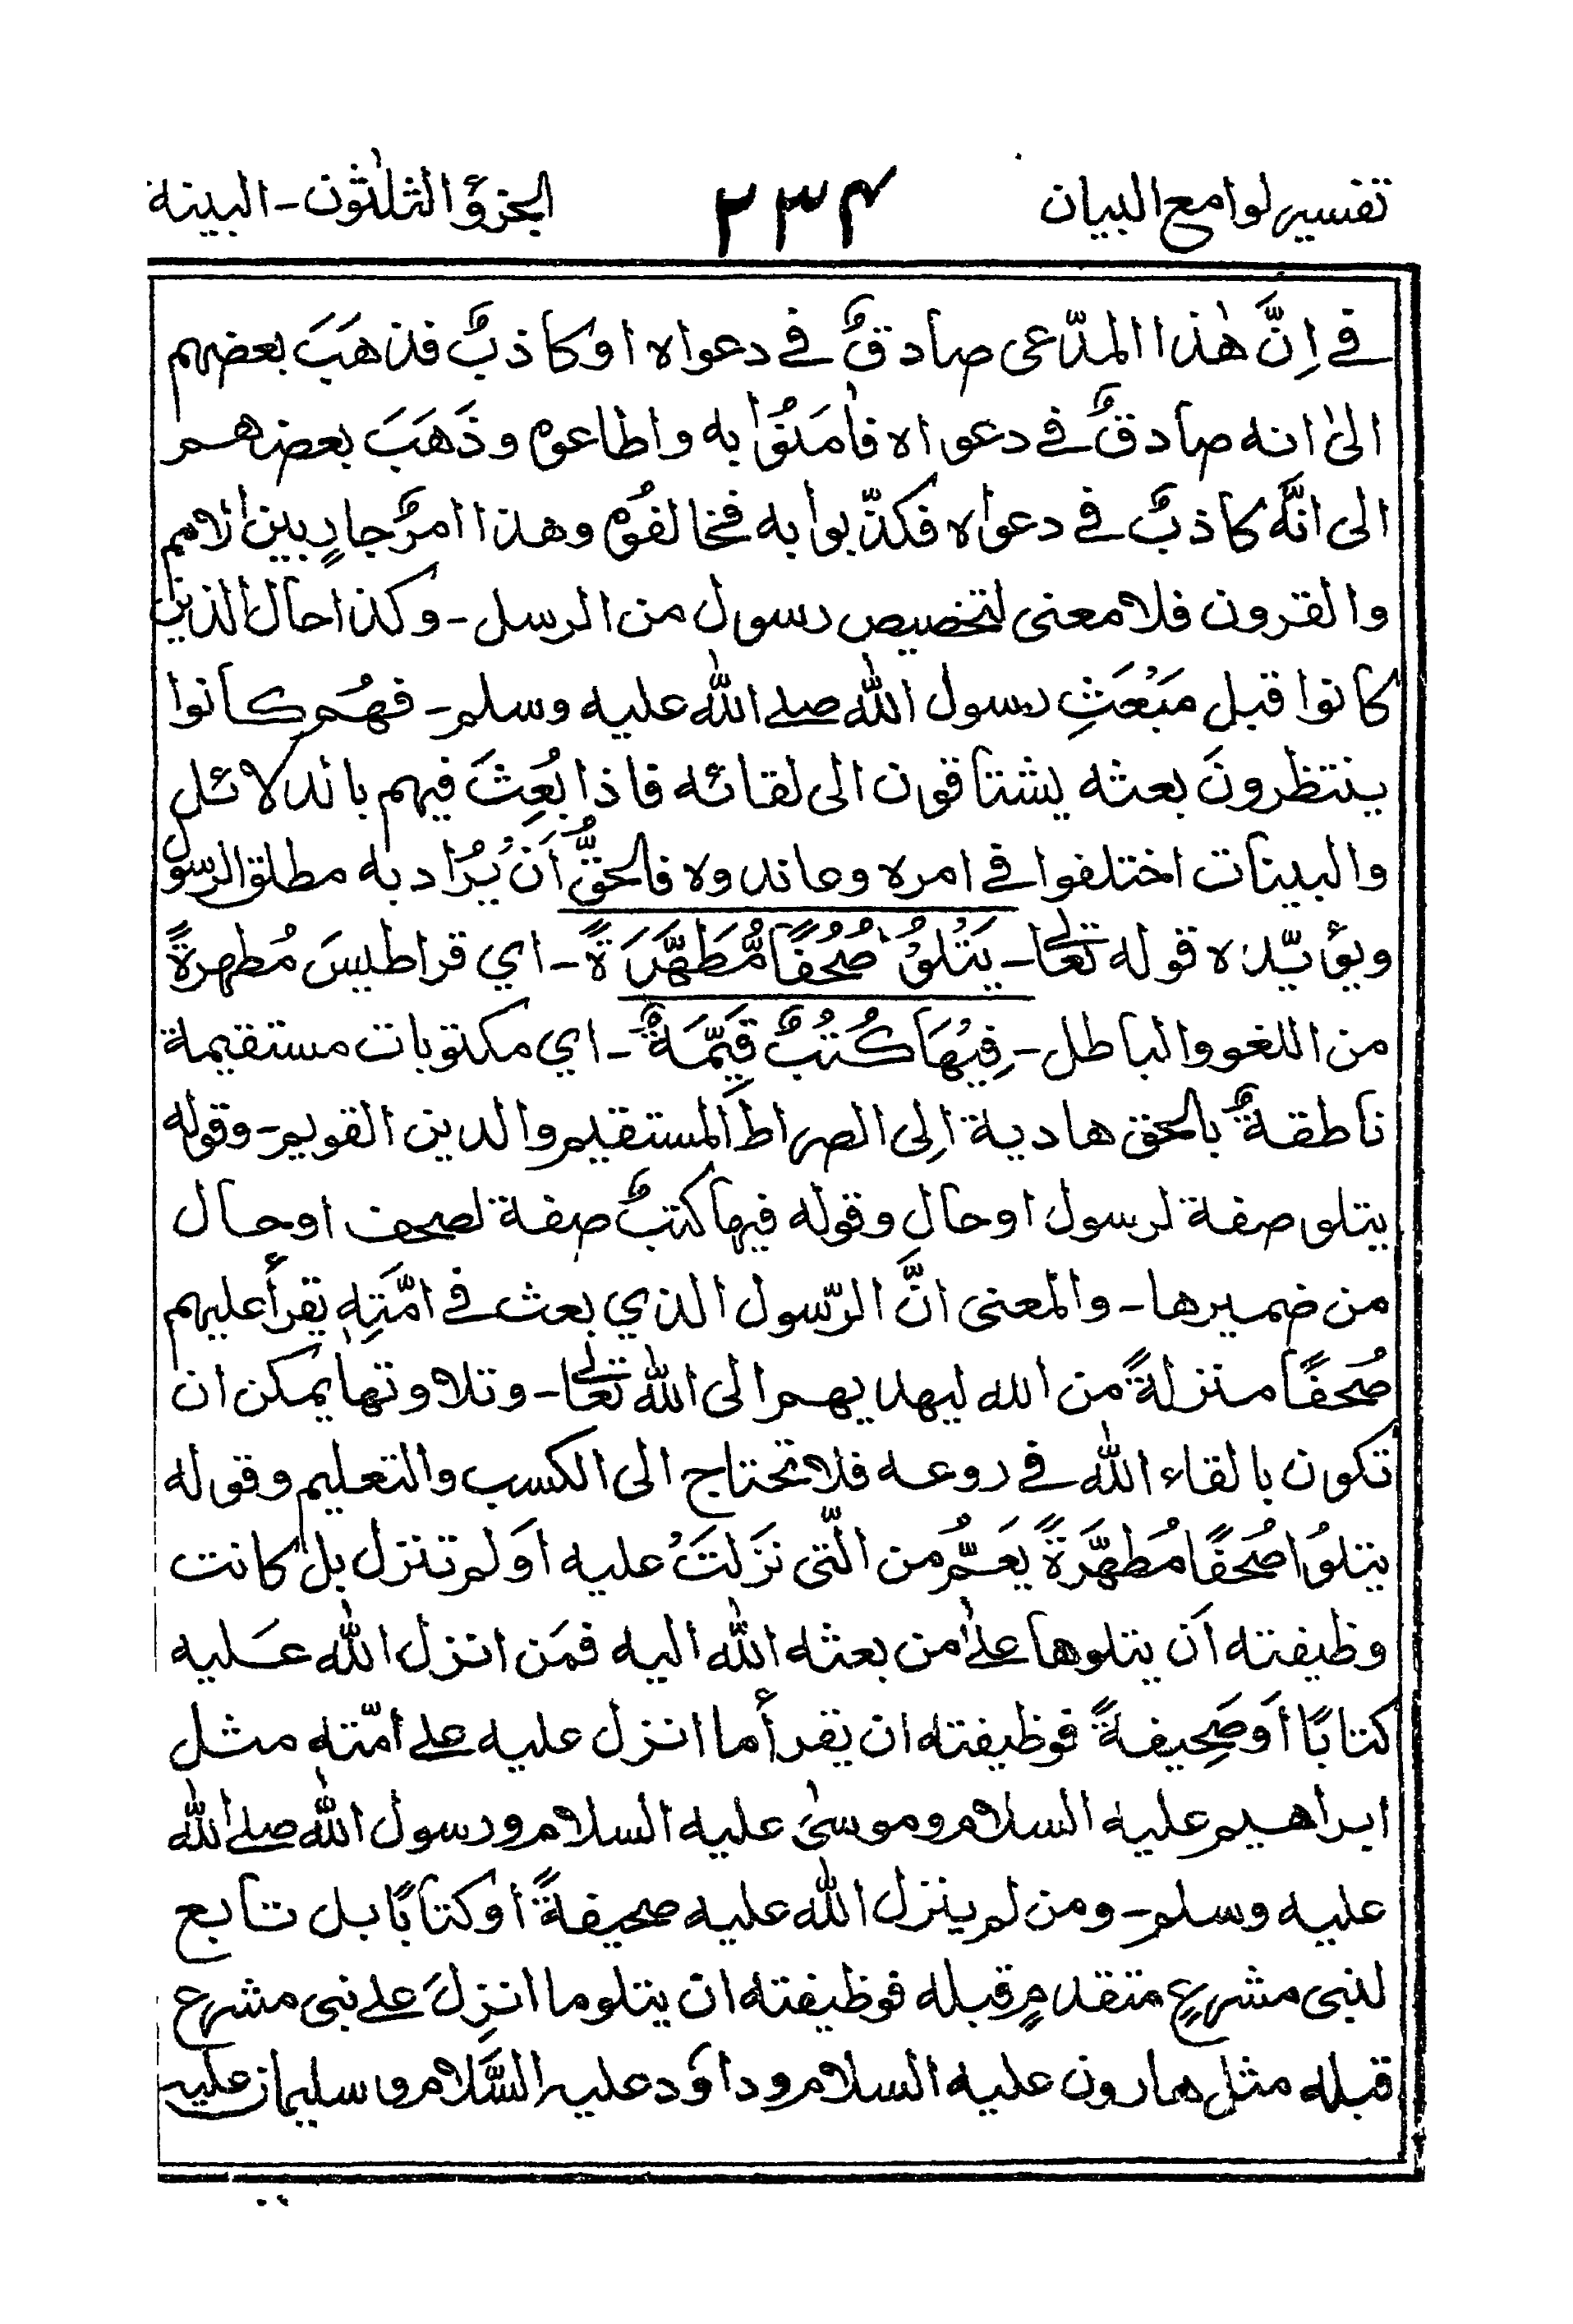 تفسير لوامع البيان ٢٣٤ الجزؤ الثلٰثون - البينة
في اِنَّ هٰذا المدّعى صادقٌ في دعواه او كاذبٌ فذهَبَ بعضهم
الىٰ انه صادقٌ في دعواه فاٰمَنُوْا به واطاعوه وذَهَبَ بعضهم
الى انَّه كاذبٌ في دعواه فكذّبوا به فخالفوُه وهذا امرٌ جارٍ بين الامم
والقرون فلا معنى لتخصيص رسول من الرسل - وكذا حال الذين
كانوا قبل مَبْعَثِ رسول اللّٰه صلى اللّٰه عليه وسلم - فهُم كانوا
ينتظرونَ بعثه يشتاقون الى لقائه فاذا بُعِثَ فيهم بالدلائل
والبينات اختلفوا في امره وعاندوه فالحقُّ اَنْ يُرَاد به مطلق الرسول
ويؤيّده قوله تعالى - يَتْلُوْ صُحُفًا مُّطَهَّرَةً - اي قراطيسَ مُطهرةً
من اللغو والباطل - فِيْهَا كُتُبٌ قَيِّمَةٌ - اي مكتوبات مستقيمة
ناطقةٌ بالحق هادية اِلى الصراط المستقيم والدين القويم - وقوله
يتلو صفة لرسول او حال وقوله فيها كتبٌ صفة لصحف او حال
من ضميرها - والمعنى انَّ الرّسول الذي بعث في امَّتِهٖ يقرأ عليهم
صُحفًا منزلةً من الله ليهديهم الى اللّٰه تعالى - وتلاوتها يمكن ان
تكون بالقاء اللّٰه في روعه فلا تحتاج الى الكسب والتعليم وقوله
يتلوُا صُحَفًا مُطهَّرَةً يَعُمُّ من الّتى نَزَلَتْ عليه اَو لم تنزل بل كانت
وظيفته اَن يتلوها علىٰ من بعثه اللّٰه اليه فمَن انزل اللّٰه عَليه
كتابًا اَو صَحِيفةً فوظيفته ان يقرأ ما انزل عليه على امّته مثل
ابراهيم عليه السلام وموسىٰ عليه السلام ورسول اللّٰه صلى اللّٰه
عليه وسلم - ومن لم ينزل اللّٰه عليه صحيفةً او كتابًا بل تابع
لنبى مشرعٍ متقدمٍ قبله فوظيفته ان يتلو ما انزِلَ على نبى مشرع
قبله مثل هارون عليه السلام وداوٗد عليه السَّلام و سليمان عليه